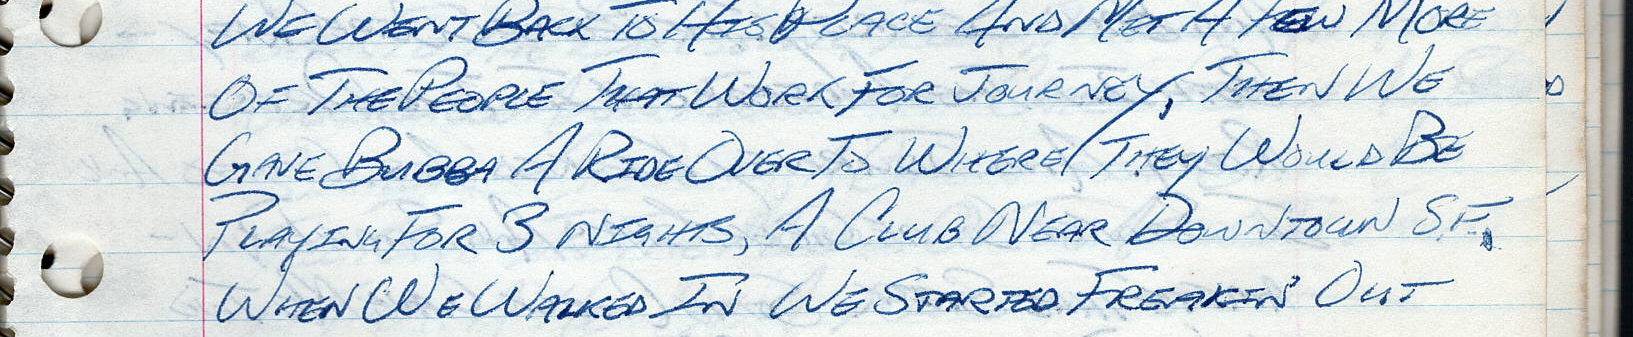 We Went Back To His Place And Met A Few More
Of The People That Work For Journey, Then We
Gave Bubba A Ride Over To Where They Would Be
Playing For 3 Nights, A Club Near Downtown S.F.,
When We Walked In We Started Freakin' Out